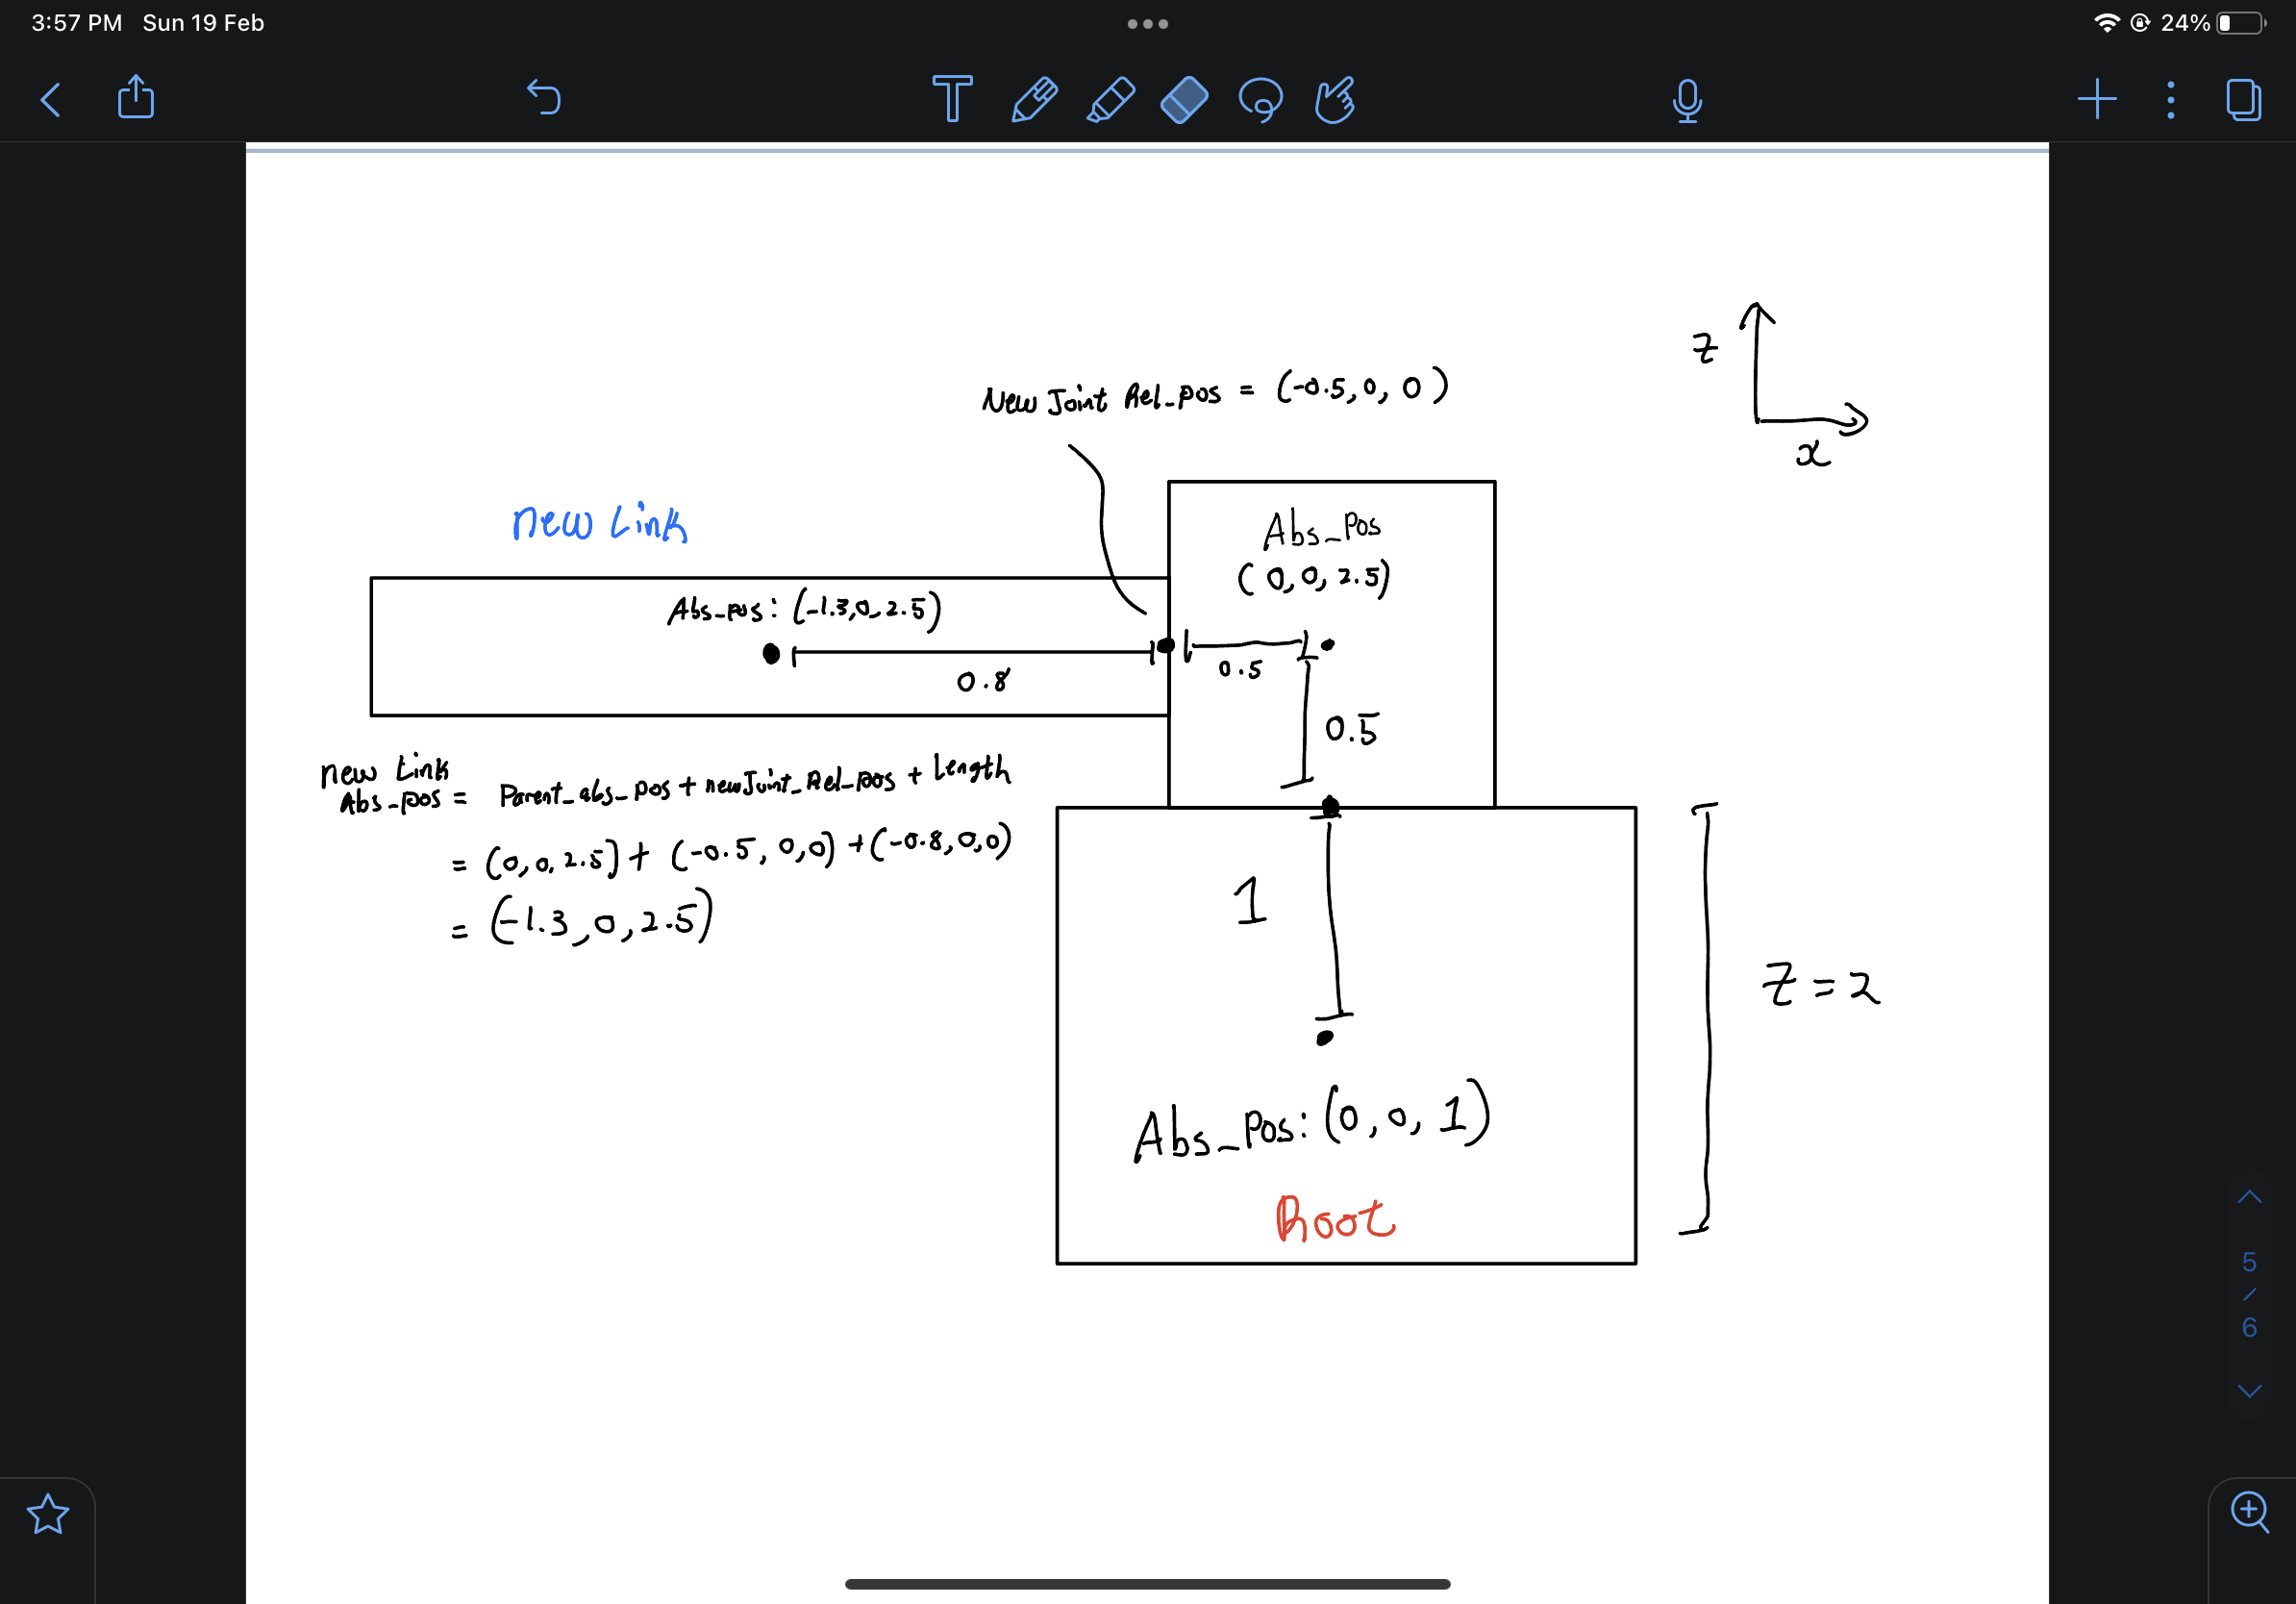 3:57 PM Sun 19 Feb
24%
T
New Joint Rel_pos = (-0.5, 0, 0)
z
x
new Link
Abs_Pos
(0, 0, 2.5)
Abs_pos: (-1.3, 0, 2.5)
0.8
0.5
0.5
new Link
Abs_pos = Parent_abs_pos + newJoint_Rel_pos + Length
= (0, 0, 2.5) + (-0.5, 0, 0) + (-0.8, 0, 0)
= (-1.3, 0, 2.5)
1
z = 2
Abs_Pos: (0, 0, 1)
Root
5
/
6